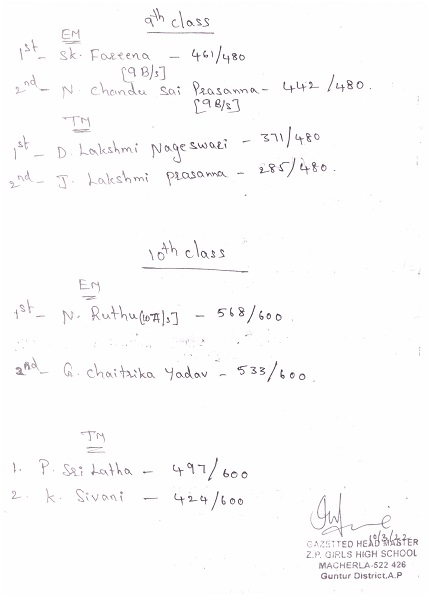 9th class
EM
1st - Sk. Fareena - 461/480
[9 B/s]
2nd - N. Chandu Sai Prasanna - 442/480.
[9 B/s]
TM
1st - D. Lakshmi Nageswari - 371/480
2nd - J. Lakshmi prasanna - 285/480.
10th class
EM
1st - N. Ruthu [10 A/s] - 568/600
2nd - G. Chaitrika Yadav - 533/600.
TM
1. P. Sri Latha - 497/600
2. K. Sivani - 424/600
GAZETTED HEAD MASTER
Z.P. GIRLS HIGH SCHOOL
MACHERLA-522 426
Guntur District.A.P